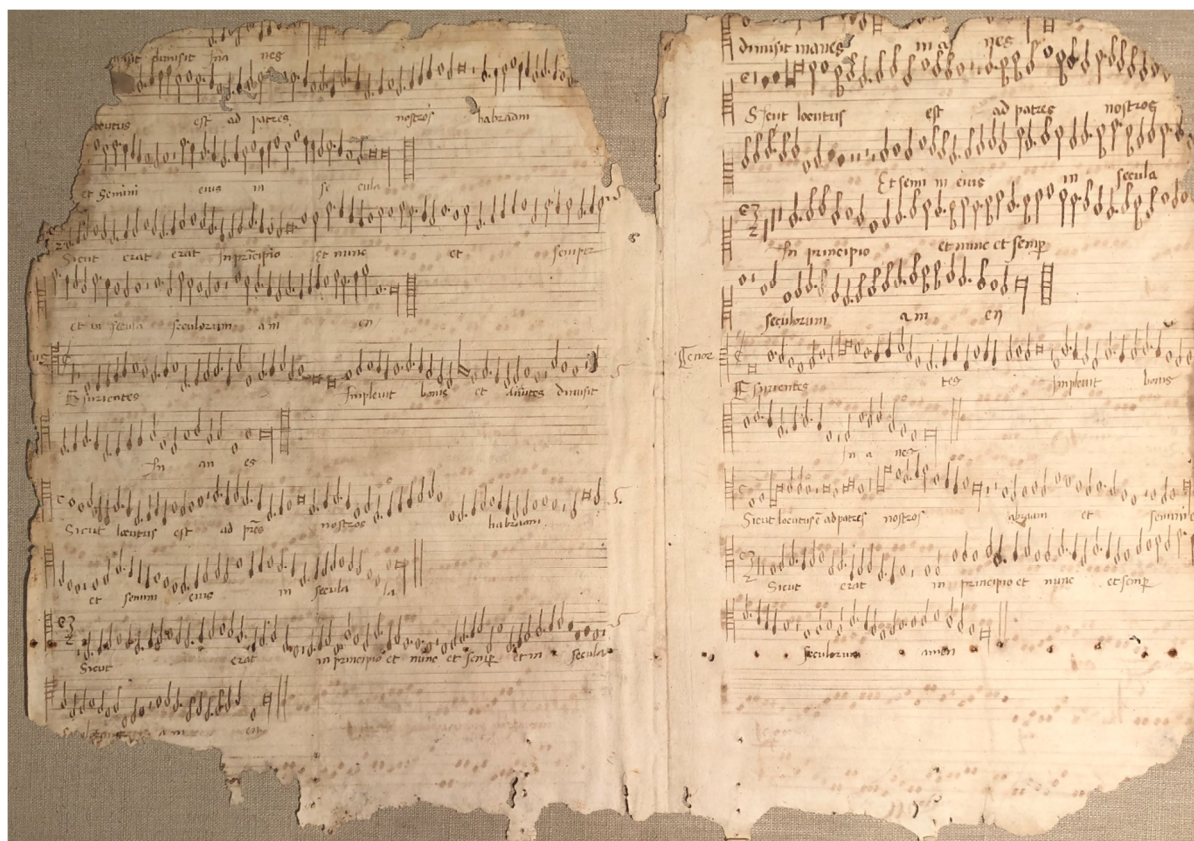 dimisit ina nes
est ad patres nostros habraam
et Semini eius in se cula
Sicut erat erat Inprīcipio et nunc et semper
et in secula seculorum am en
Esurientes Implevit bonis et divites dimisit
In an es
Sicut locutus est ad p̄r̄es nostros habraam
et semini eius in secula la
Sicut erat in principio et nunc et semp et in secula
a m en
dimisit inanes in a nes
Sicut locutus est ad patres nostros
Et semi ni eius in secula
In principio et nunc et semp
seculorum a m en
Tenor
Esurientes tes Implevit bonis
In a nes
Sicut locutus ē ad patres nostros abraam et semini
Sicut erat in principio et nunc et semp
seculorum amen